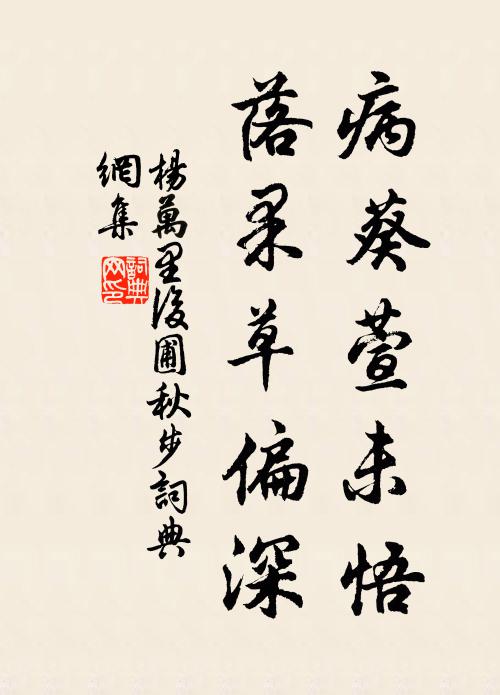 病葵萱未悟
落果草偏深
楊萬里後圃秋步詞典
網集
詞典
网印